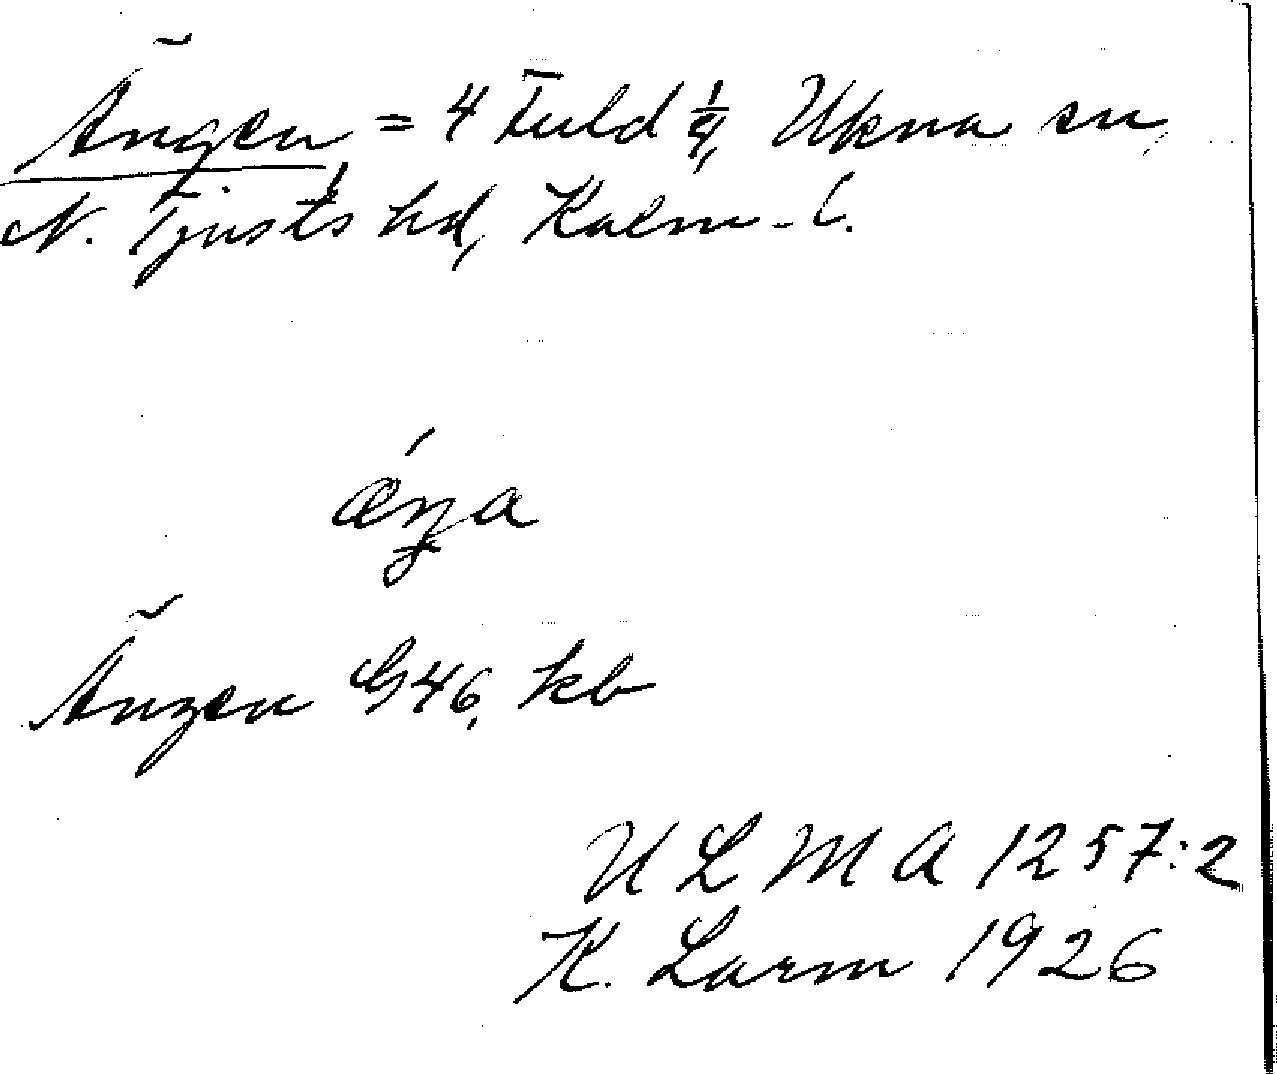 Ängen = 4 Tuld 1/4, Ukna sn,
N. Tjusts hd, Kalm. l.
ǽŋa
Ängen G46, kb
ULMA 1257:2
K. Larm 1926